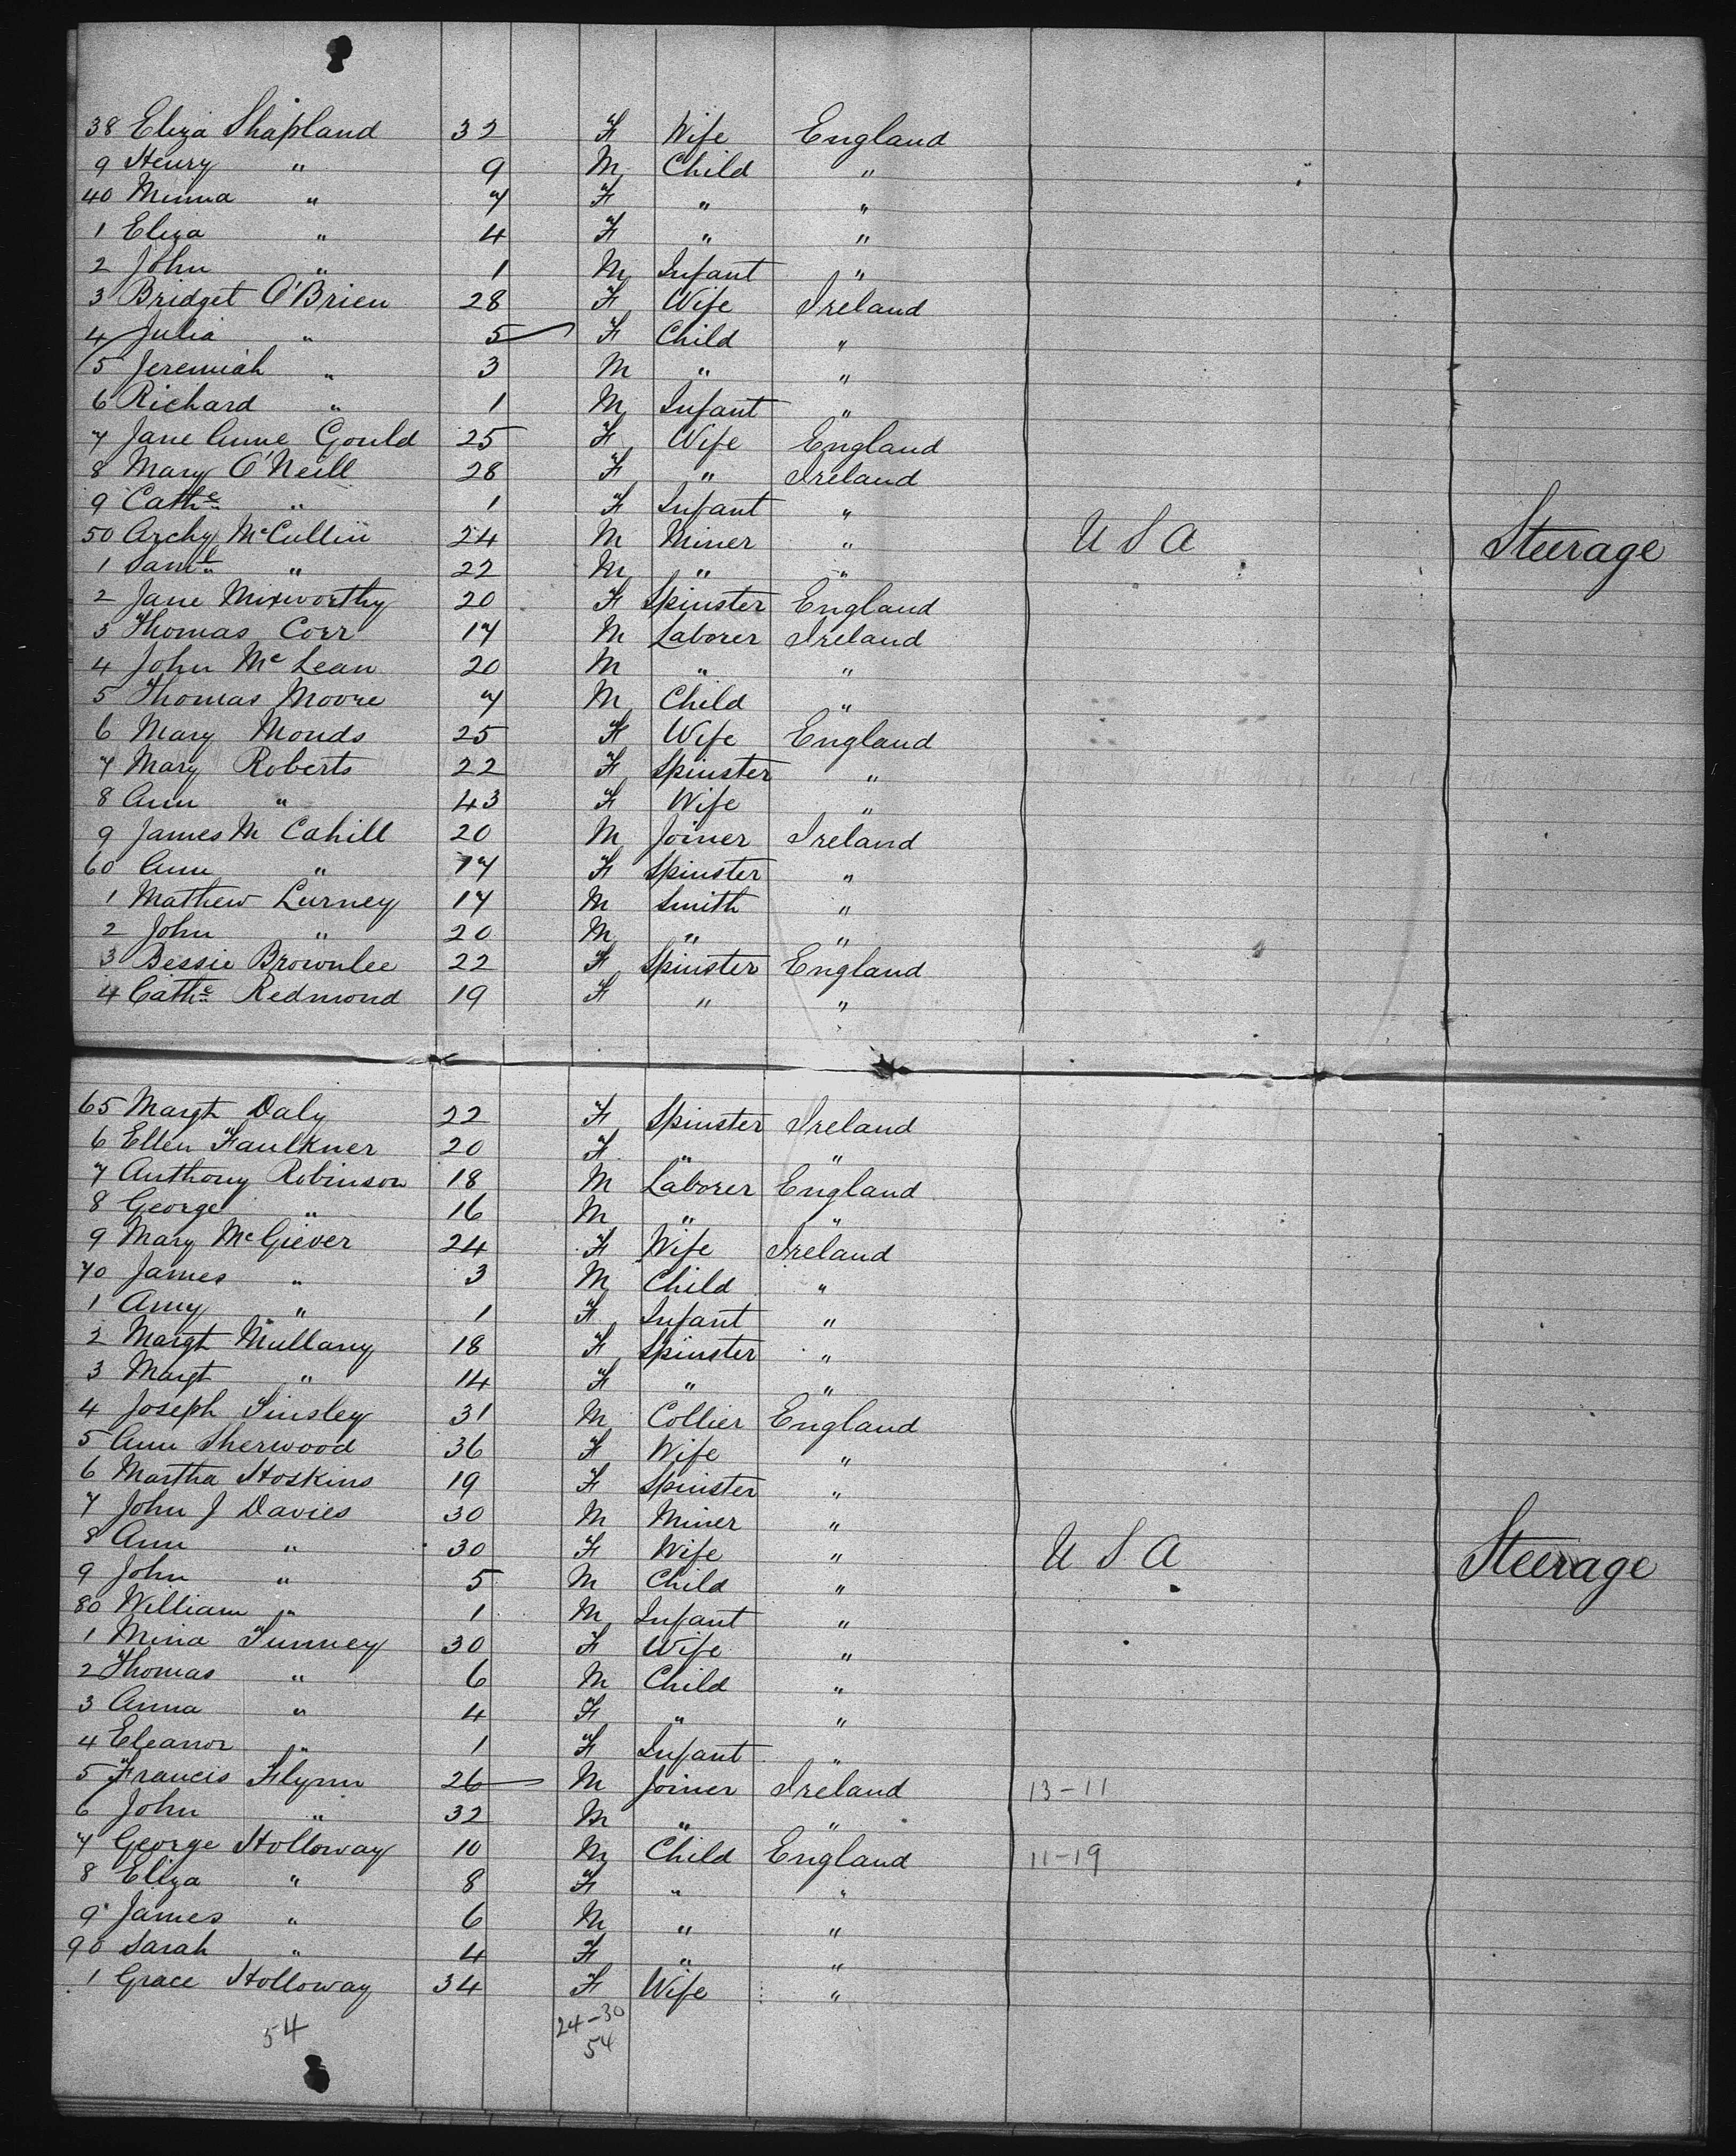 38 Eliza Shapland 32 F Wife England
9 Henry " 9 M Child "
40 Minna " 7 F " "
1 Eliza " 4 F " "
2 John " 1 M Infant "
3 Bridget O'Brien 28 F Wife Ireland
4 Julia " 5 F Child "
5 Jeremiah " 3 M " "
6 Richard " 1 M Infant "
7 Jane Anne Gould 25 F Wife England
8 Mary O'Neill 28 F " Ireland
9 Cathe " 1 F Infant "
50 Archy McCullin 24 M Miner " U S A Steerage
1 Saml " 22 M " "
2 Jane Mixworthy 20 F Spinster England
3 Thomas Corr 17 M Laborer Ireland
4 John Mc Lean 20 M " "
5 Thomas Moore 7 M Child "
6 Mary Monds 25 F Wife England
7 Mary Roberts 22 F Spinster "
8 Ann " 43 F Wife "
9 James M Cahill 20 M Joiner Ireland
60 Ann " 17 F Spinster "
1 Mathew Lurney 17 M Smith "
2 John " 20 M " "
3 Bessie Brownlee 22 F Spinster England
4 Cathe Redmond 19 F " "
65 Margt Daly 22 F Spinster Ireland
6 Ellen Faulkner 20 F " "
7 Anthony Robinson 18 M Laborer England
8 George " 16 M " "
9 Mary McGiever 24 F Wife Ireland
70 James " 3 M Child "
1 Amy " 1 F Infant "
2 Margt Mullany 18 F Spinster "
3 Margt " 14 F " "
4 Joseph Tinsley 31 M Collier England
5 Ann Sherwood 36 F Wife "
6 Martha Hoskins 19 F Spinster "
7 John J Davies 30 M Miner "
8 Ann " 30 F Wife " U S A Steerage
9 John " 5 M Child "
80 William " 1 M Infant "
1 Mina Tunney 30 F Wife "
2 Thomas " 6 M Child "
3 Anna " 4 F " "
4 Eleanor " 1 F Infant "
5 Francis Flynn 26 M Joiner Ireland 13-11
6 John " 32 M " "
7 George Holloway 10 M Child England 11-19
8 Eliza " 8 F " "
9 James " 6 M " "
90 Sarah " 4 F " "
1 Grace Holloway 34 F Wife "
54 24-30
54